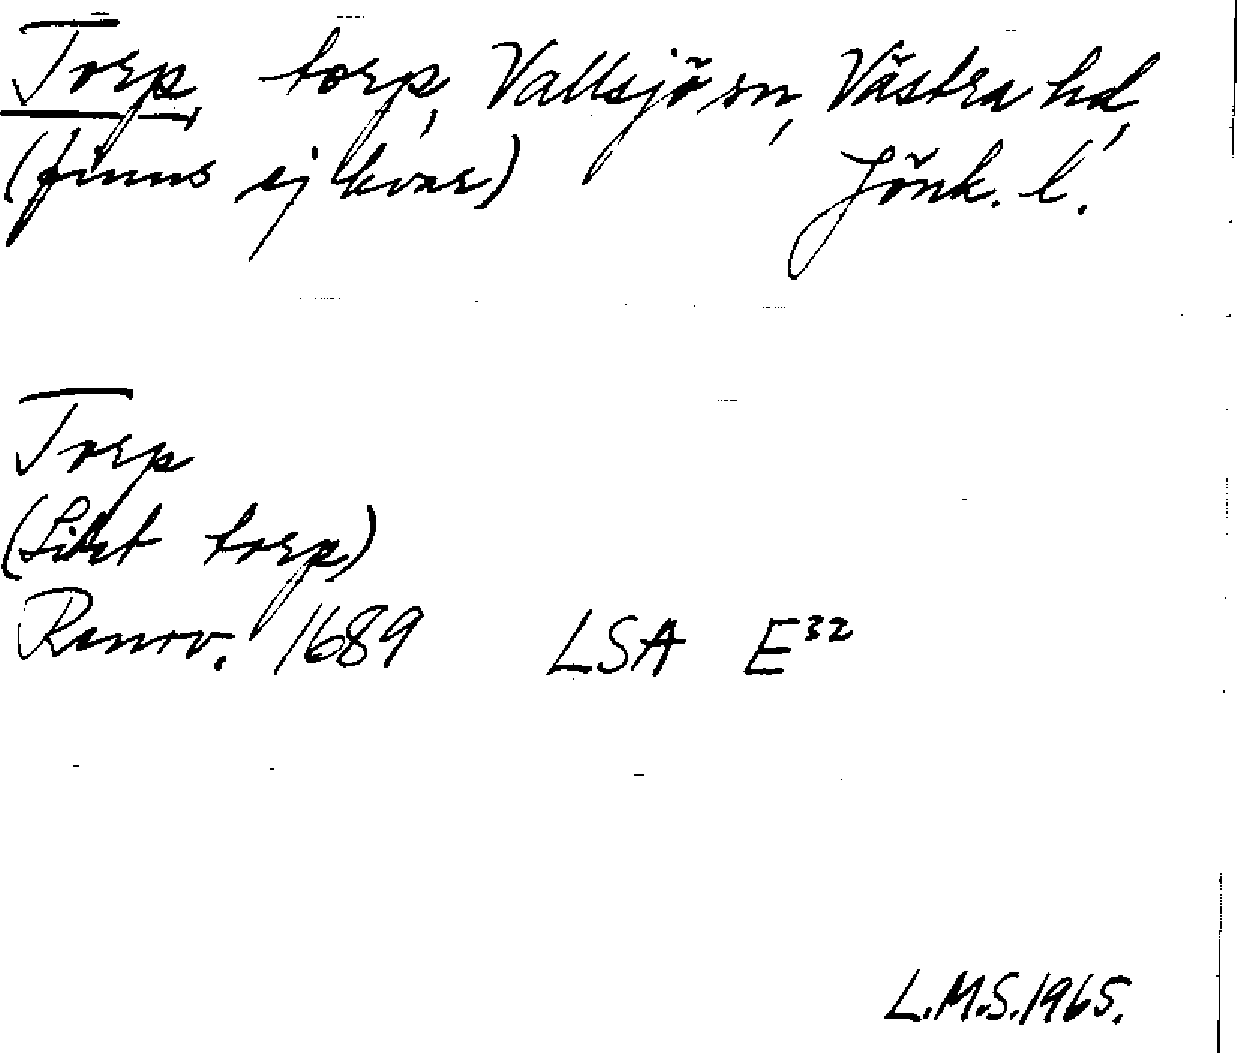 Torp, torp, Vallsjö sn, Västra hd,
(finns ej kvar) Jönk. l.
Torp
(Litet torp)
Renov. 1689 LSA E³²
L.M.S. 1965.